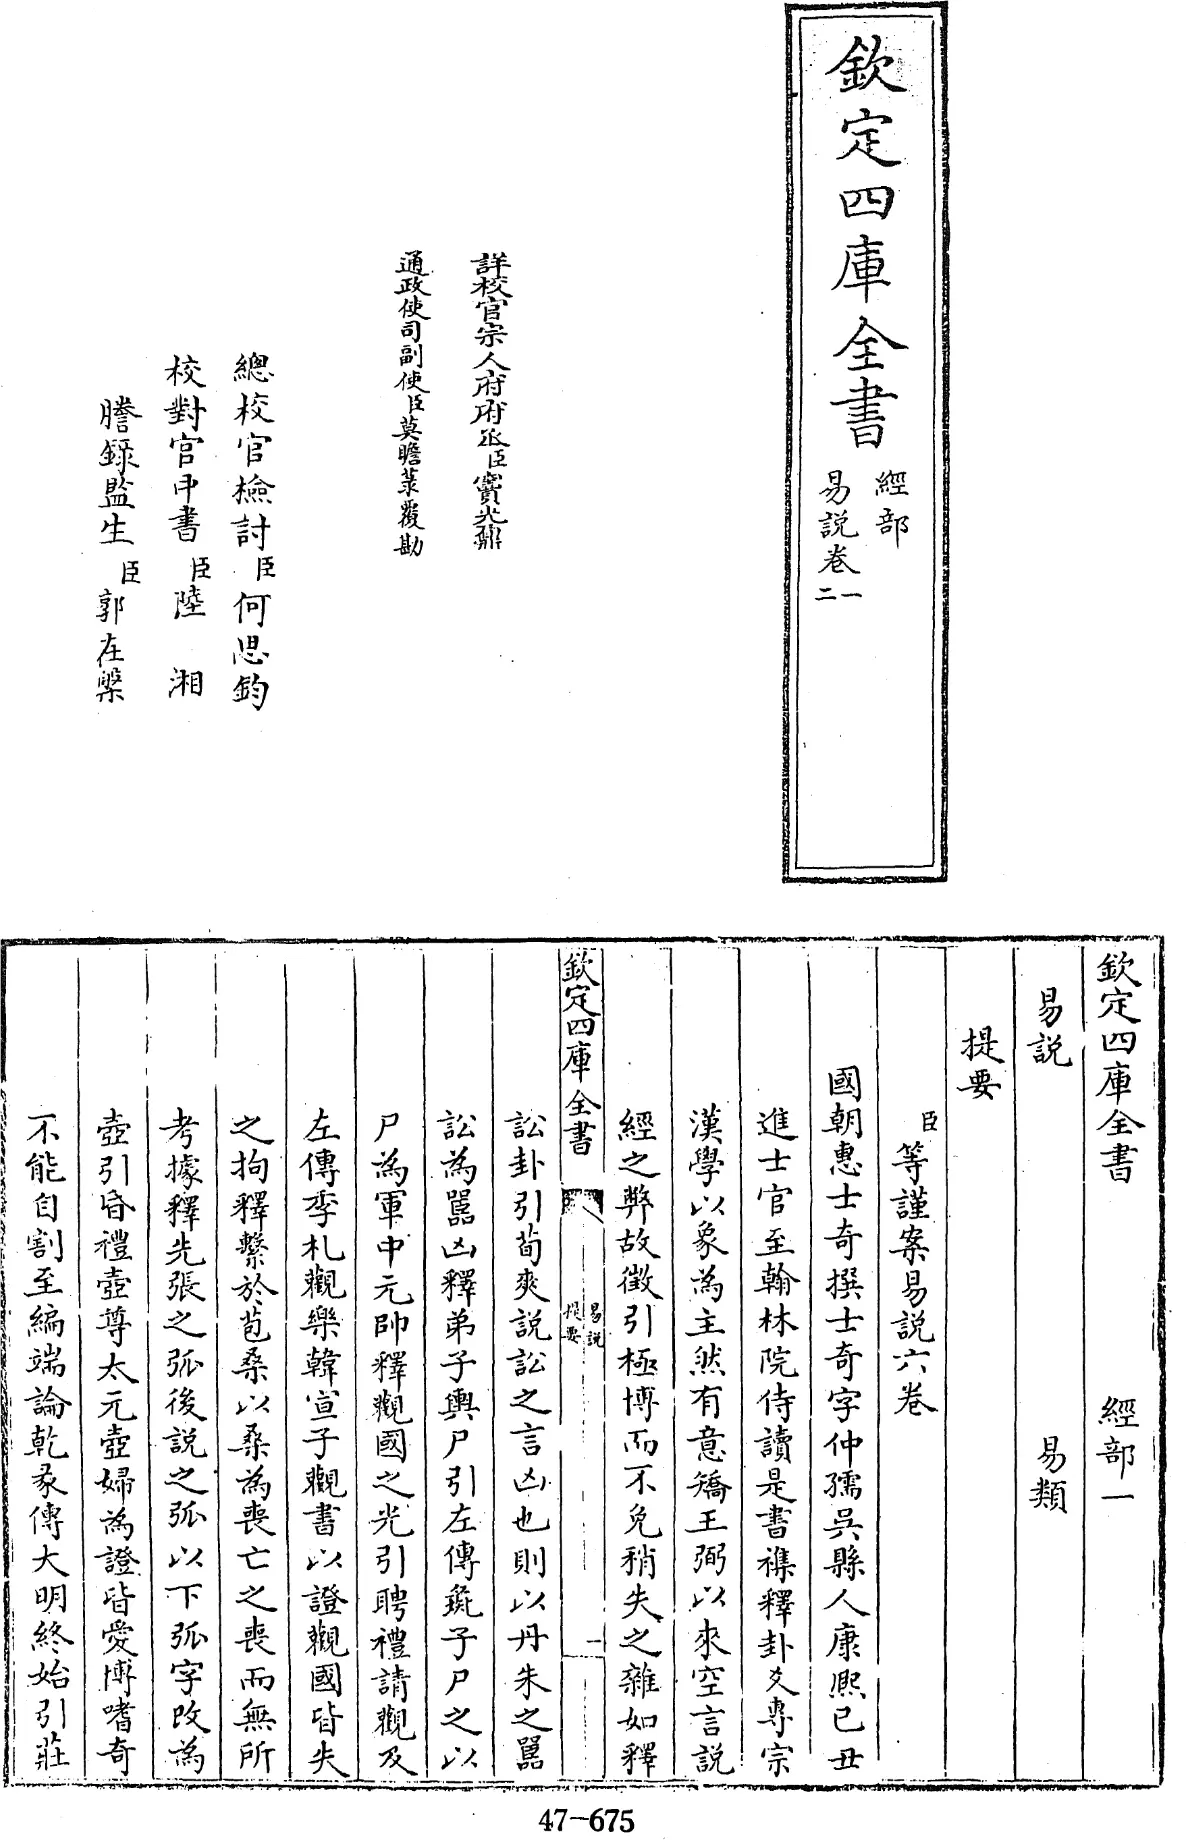 欽定四庫全書
經部
易說卷一
二
詳校官宗人府府丞臣竇光鼐
通政使司副使臣莫瞻菉覆勘
總校官檢討臣何思鈞
校對官中書臣陸湘
謄錄監生臣郭在槃
欽定四庫全書 經部一
易說 易類
提要
臣等謹案易說六卷
國朝惠士奇撰士奇字仲孺吳縣人康熙己丑
進士官至翰林院侍讀是書襍釋卦爻專宗
漢學以象為主然有意矯王弼以來空言說
經之弊故徵引極博而不免稍失之雜如釋
欽定四庫全書
易說
提要
一
訟卦引荀爽說訟之言凶也則以丹朱之嚚
訟為嚚凶釋弟子輿尸引左傳彘子尸之以
尸為軍中元帥釋觀國之光引聘禮請觀及
左傳季札觀樂韓宣子觀書以證觀國皆失
之拘釋繫於苞桑以桑為喪亡之喪而無所
考據釋先張之弧後說之弧以下弧字改為
壺引昏禮壺尊太元壺婦為證皆愛博嗜奇
不能自割至編端論乾彖傳大明終始引莊
47-675